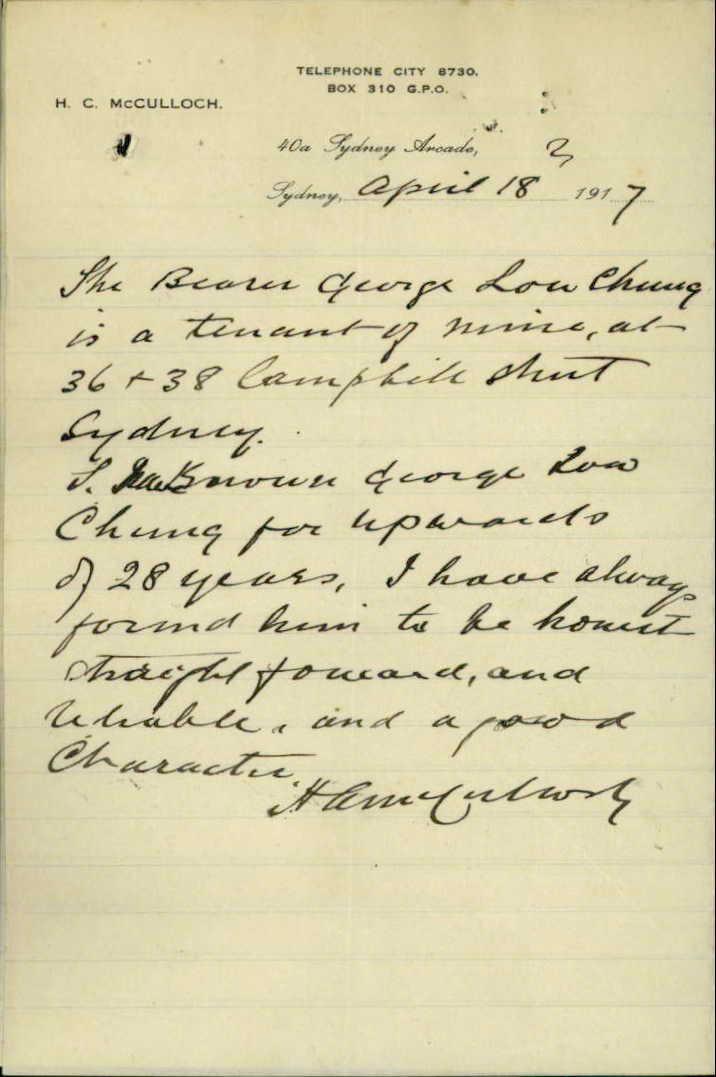 TELEPHONE CITY 8730.
BOX 310 G.P.O.
H. C. McCULLOCH.
40a Sydney Arcade,
3
Sydney, April 18 1917
The Bearer George Low Chung
is a tenant of mine, at
36 + 38 Campbell street
Sydney.
I. Known George Low
Chung for upwards
of 28 years, I have always
found him to be honest
straight forward, and
reliable, and a good
Character
H C McCulloch